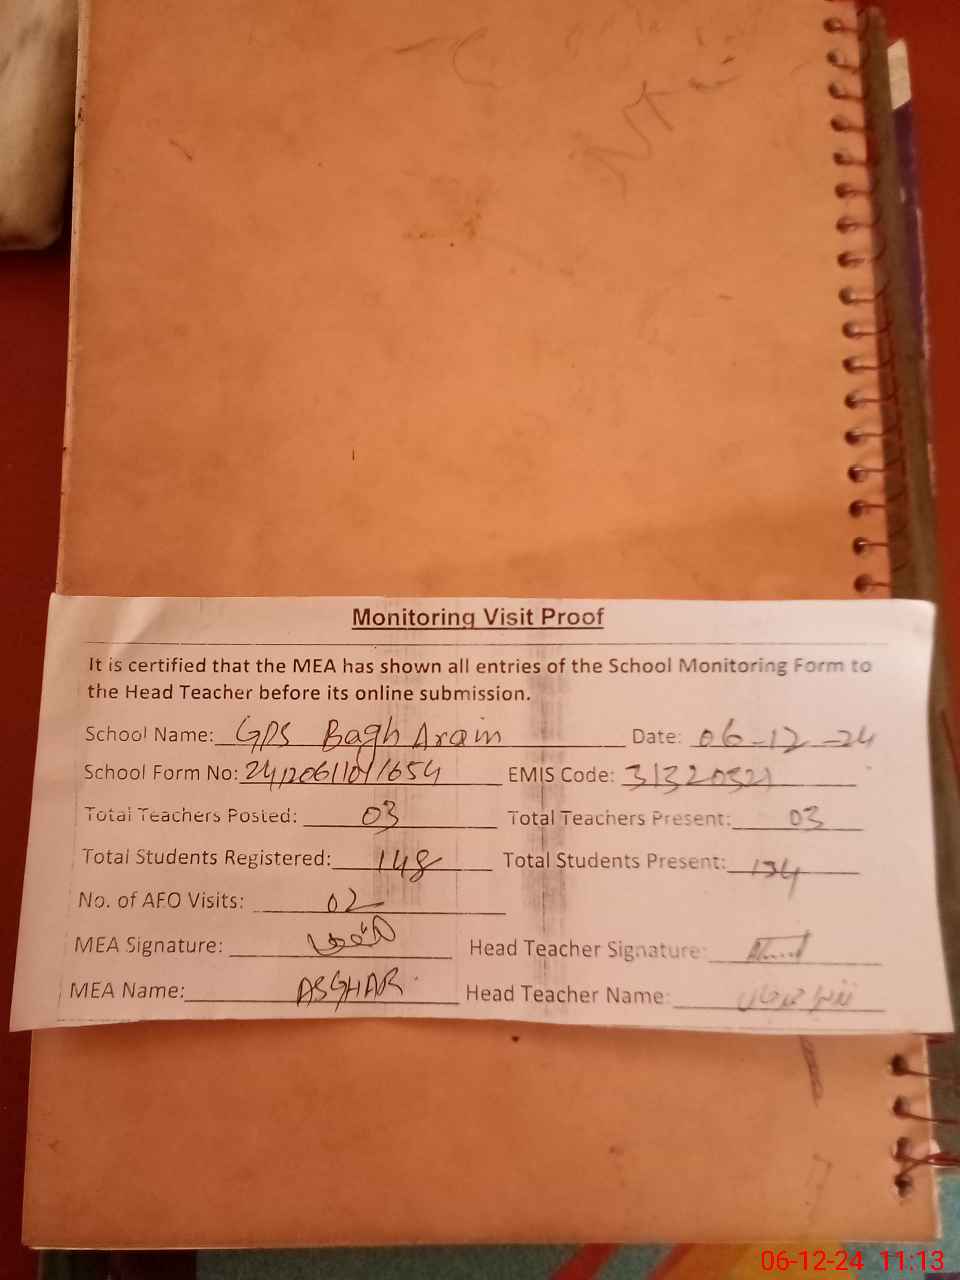 Monitoring Visit Proof
It is certified that the MEA has shown all entries of the School Monitoring Form to
the Head Teacher before its online submission.
School Name: GPS Bagh Arain Date: 06-12-24
School Form No: EMIS Code: 31320321
Total Teachers Posted: 03 Total Teachers Present: 03
Total Students Registered: 148 Total Students Present: 134
No. of AEO Visits: 02
MEA Signature: Head Teacher Signature:
MEA Name: ASGHAR Head Teacher Name:
06-12-24 11:13